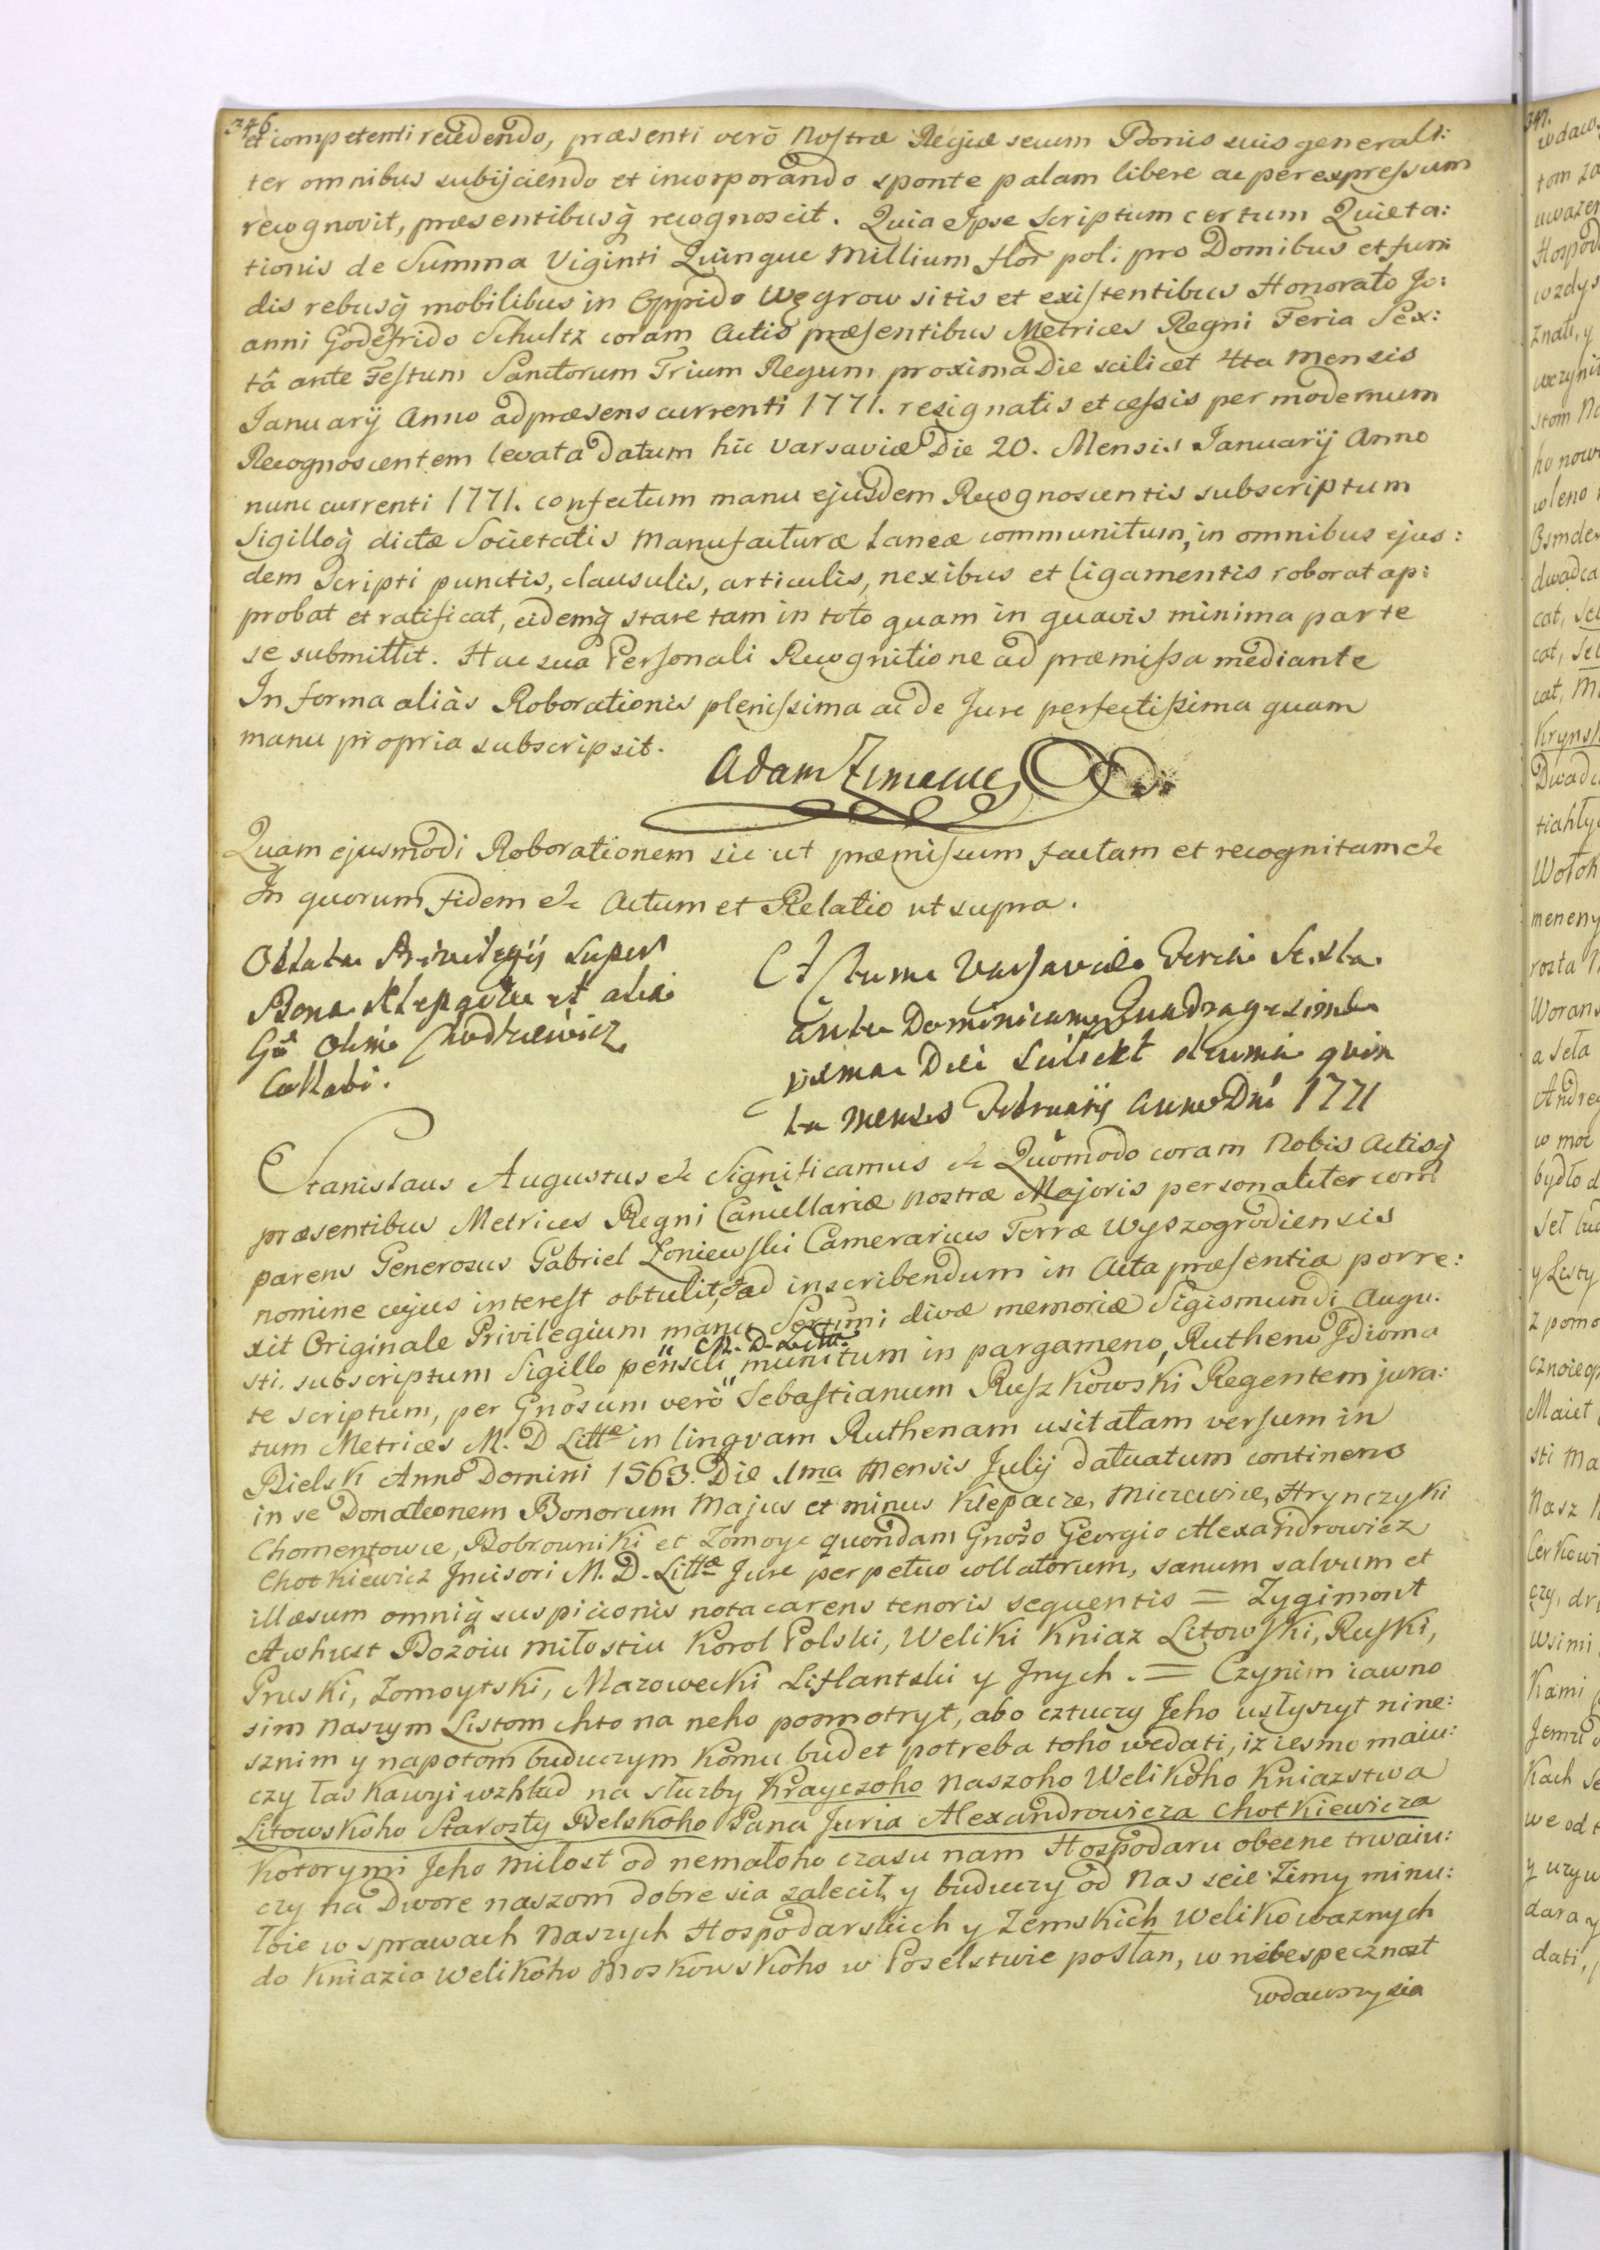 346
et competenti recedendo, præsenti verò Nostræ Regiæ secum Bonis suis generali:
ter omnibus subijciendo et incorporando sponte palam libere ac per expressum
recognovit, præsentibusq̀ recognoscit. Quia Ipse Scriptum certum Quieta:
tionis de Summa Viginti Quinque Millium flor pol: pro Domibus et fun
dis rebusq̀ mobilibus in Oppido Węgrow sitis et existentibus Honorato Jo:
anni Godefrido Schultz coram Actis præsentibus Metrices Regni Feria Sex:
tâ ante Festum Sanctorum Trium Regum proxima Die scilicet 4ta Mensis
Januarij Anno ad præsens currenti 1771. resignatis et cessis per modernum
Recognoscentem levata Datum hic Varsaviæ Die 20. Mensis Januarij Anno
nunc currenti 1771. confectum manu ejusdem Recognoscentis subscriptum
Sigilloq̀ dictæ Societatis Manufacturæ Laneæ communitum, in omnibus ejus:
dem Scripti punctis, clausulis, articulis, nexibus et ligamentis roborat ap:
probat et ratificat, eidemq̀ stare tam in toto quam in quavis minima parte
se submittit. Hac sua Personali Recognitione ad præmissa mediante
In forma aliàs Roborationis plenissima ac de Jure perfectissima quam
manu propria subscripsit.
Adam
Quam ejusmodi Roborationem sic ut præmissum factam et recognitam &c
In quorum fidem &c Actum et Relatio ut supra.
Oblata Privilegij super
Bona Klepacze et alia
Gñ Olim Chodkiewicz
Collati.
Actum Varsaviæ Feria Sexta
ante Dominicam Quadragesimæ
proxima Die Scilicet decima quin
ta Mensis Februarij Anno Dńi 1771
Stanislaus Augustus &c Significamus &c Quomodo coram Nobis Actisq̀
præsentibus Metrices Regni Cancellariæ Nostræ Majoris personaliter com
parens Generosus Gabriel Łoniewski Camerarius Terræ Wyszogrodiensis
nomine cujus interest obtulit, et ad inscribendum in Acta præsentia porre:
xit Originale Privilegium manu Serñmi divæ memoriæ Sigismundi Augu:
sti. subscriptum Sigillo pensili M. D. Litt. munitum in pargameno, Rutheno Idioma
te scriptum, per Gnosum verò Sebastianum Ruszkowski Regentem jura:
tum Metrices M. D Littæ in lingvam Ruthenam usitatam versum in
Bielsk Anno Domini 1563. Die 1ma Mensis Julij datuatum continens
in se Donationem Bonorum Majus et minus Klepacze, Miczewice, Hrynczyki
Chomentowce, Bobrowniki et Zomoye quondam Gnoso Georgio Alexandrowicz
Chotkiewicz Incisori M. D. Littæ Jure perpetuo collatorum, sanum salvum et
illæsum omniq̀ suspicionis nota carens tenoris sequentis = Zygimont
Awhust Bozoiu miłostiu Korol Polski, Weliki Kniaz Litowski, Ruski,
Pruski, Zomoytski, Mazowecki Liflantski y Jnych. = Czynim iawno
sim Naszym Listom chto na neho posmotryt, abo cztuczy Jeho usłyszyt nine:
sznim y napotom buduczym Komu budet potreba toho wedati, iz iesmo maiu:
czy łaskawyi wzhlad na służby Krayczoho Naszoho Welikoho Kniazstwa
Litowskoho Starosty Belskoho Pana Juria Alexandrowicza Chotkiewicza
Kotorymi Jeho Miłost od nemałoho czasu nam Hospodaru obecne trwaiu:
czy na Dwore naszom dobre sia zalecił, y buduczy od Nas seie Zimy minu:
łoie w sprawach Naszych Hospodarskich y Zemskich Weliko waznych
do Kniazia Welikoho Moskowskoho w Poselstwie posłan, w nebespecznost
wdawszy sia
347.
tom za
Znati, y
woleno
cat,
cat,
Krynsk
Wołok
Woran
a Seła
w moc
y Listy
z pomo
Maiet
sti Ma
Nasz
Kami
Kach se
we od
dara y
dati,